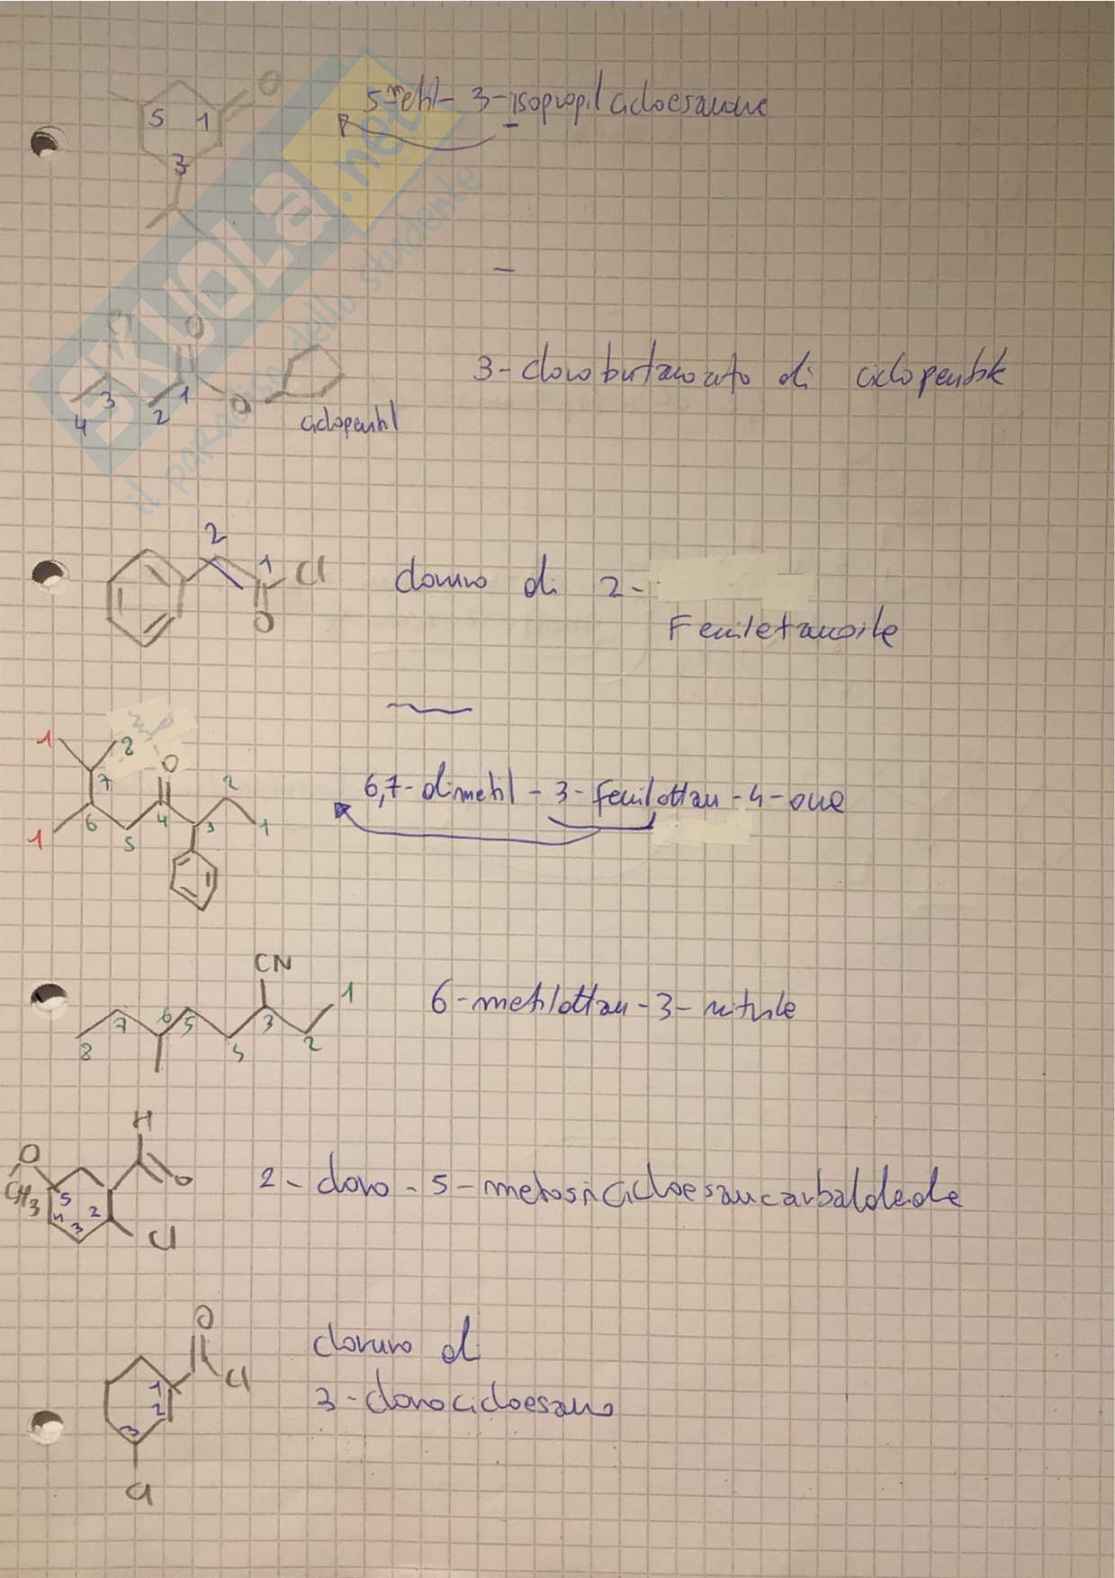 O
5-metil-3-isopropilcicloesanone
5 1
3
SKUOLA.net
il paradiso dello studente
O
3-clorobutanoato di ciclopentile
4 3 2 1 O
ciclopentil
2
1 Cl
cloruro di 2-
O
Feniletanoile
1 2
O
7
6,7-dimetil-3-fenilottan-4-one
2
1 6 5 4 3 1
CN
1
6-metilottan-3-nitrile
8 7 6 5 5 3 2
H
O
O
CH3
5 4 3 2
Cl
2-cloro-5-metossicicloesancarbaldeide
O
cloruro di
Cl
1
2
3
3-clorocicloesano
Cl